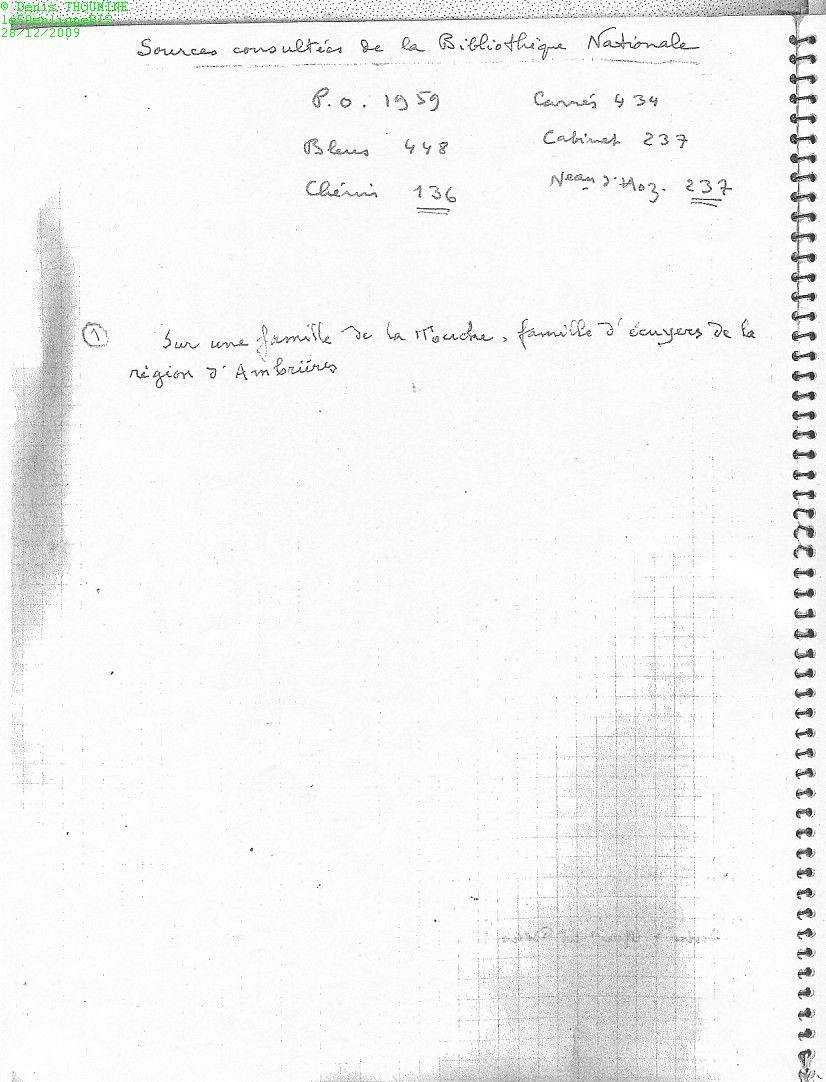 © Denis THOUMINE
28/12/2009
Sources consultées de la Bibliothèque Nationale
P.O. 1959 Carrés 434
Bleus 448 Cabinet 237
Chérin 136 d'Hoz. 237
1 Sur une famille de la Touche, famille d'écuyers de la
région d'Ambrières